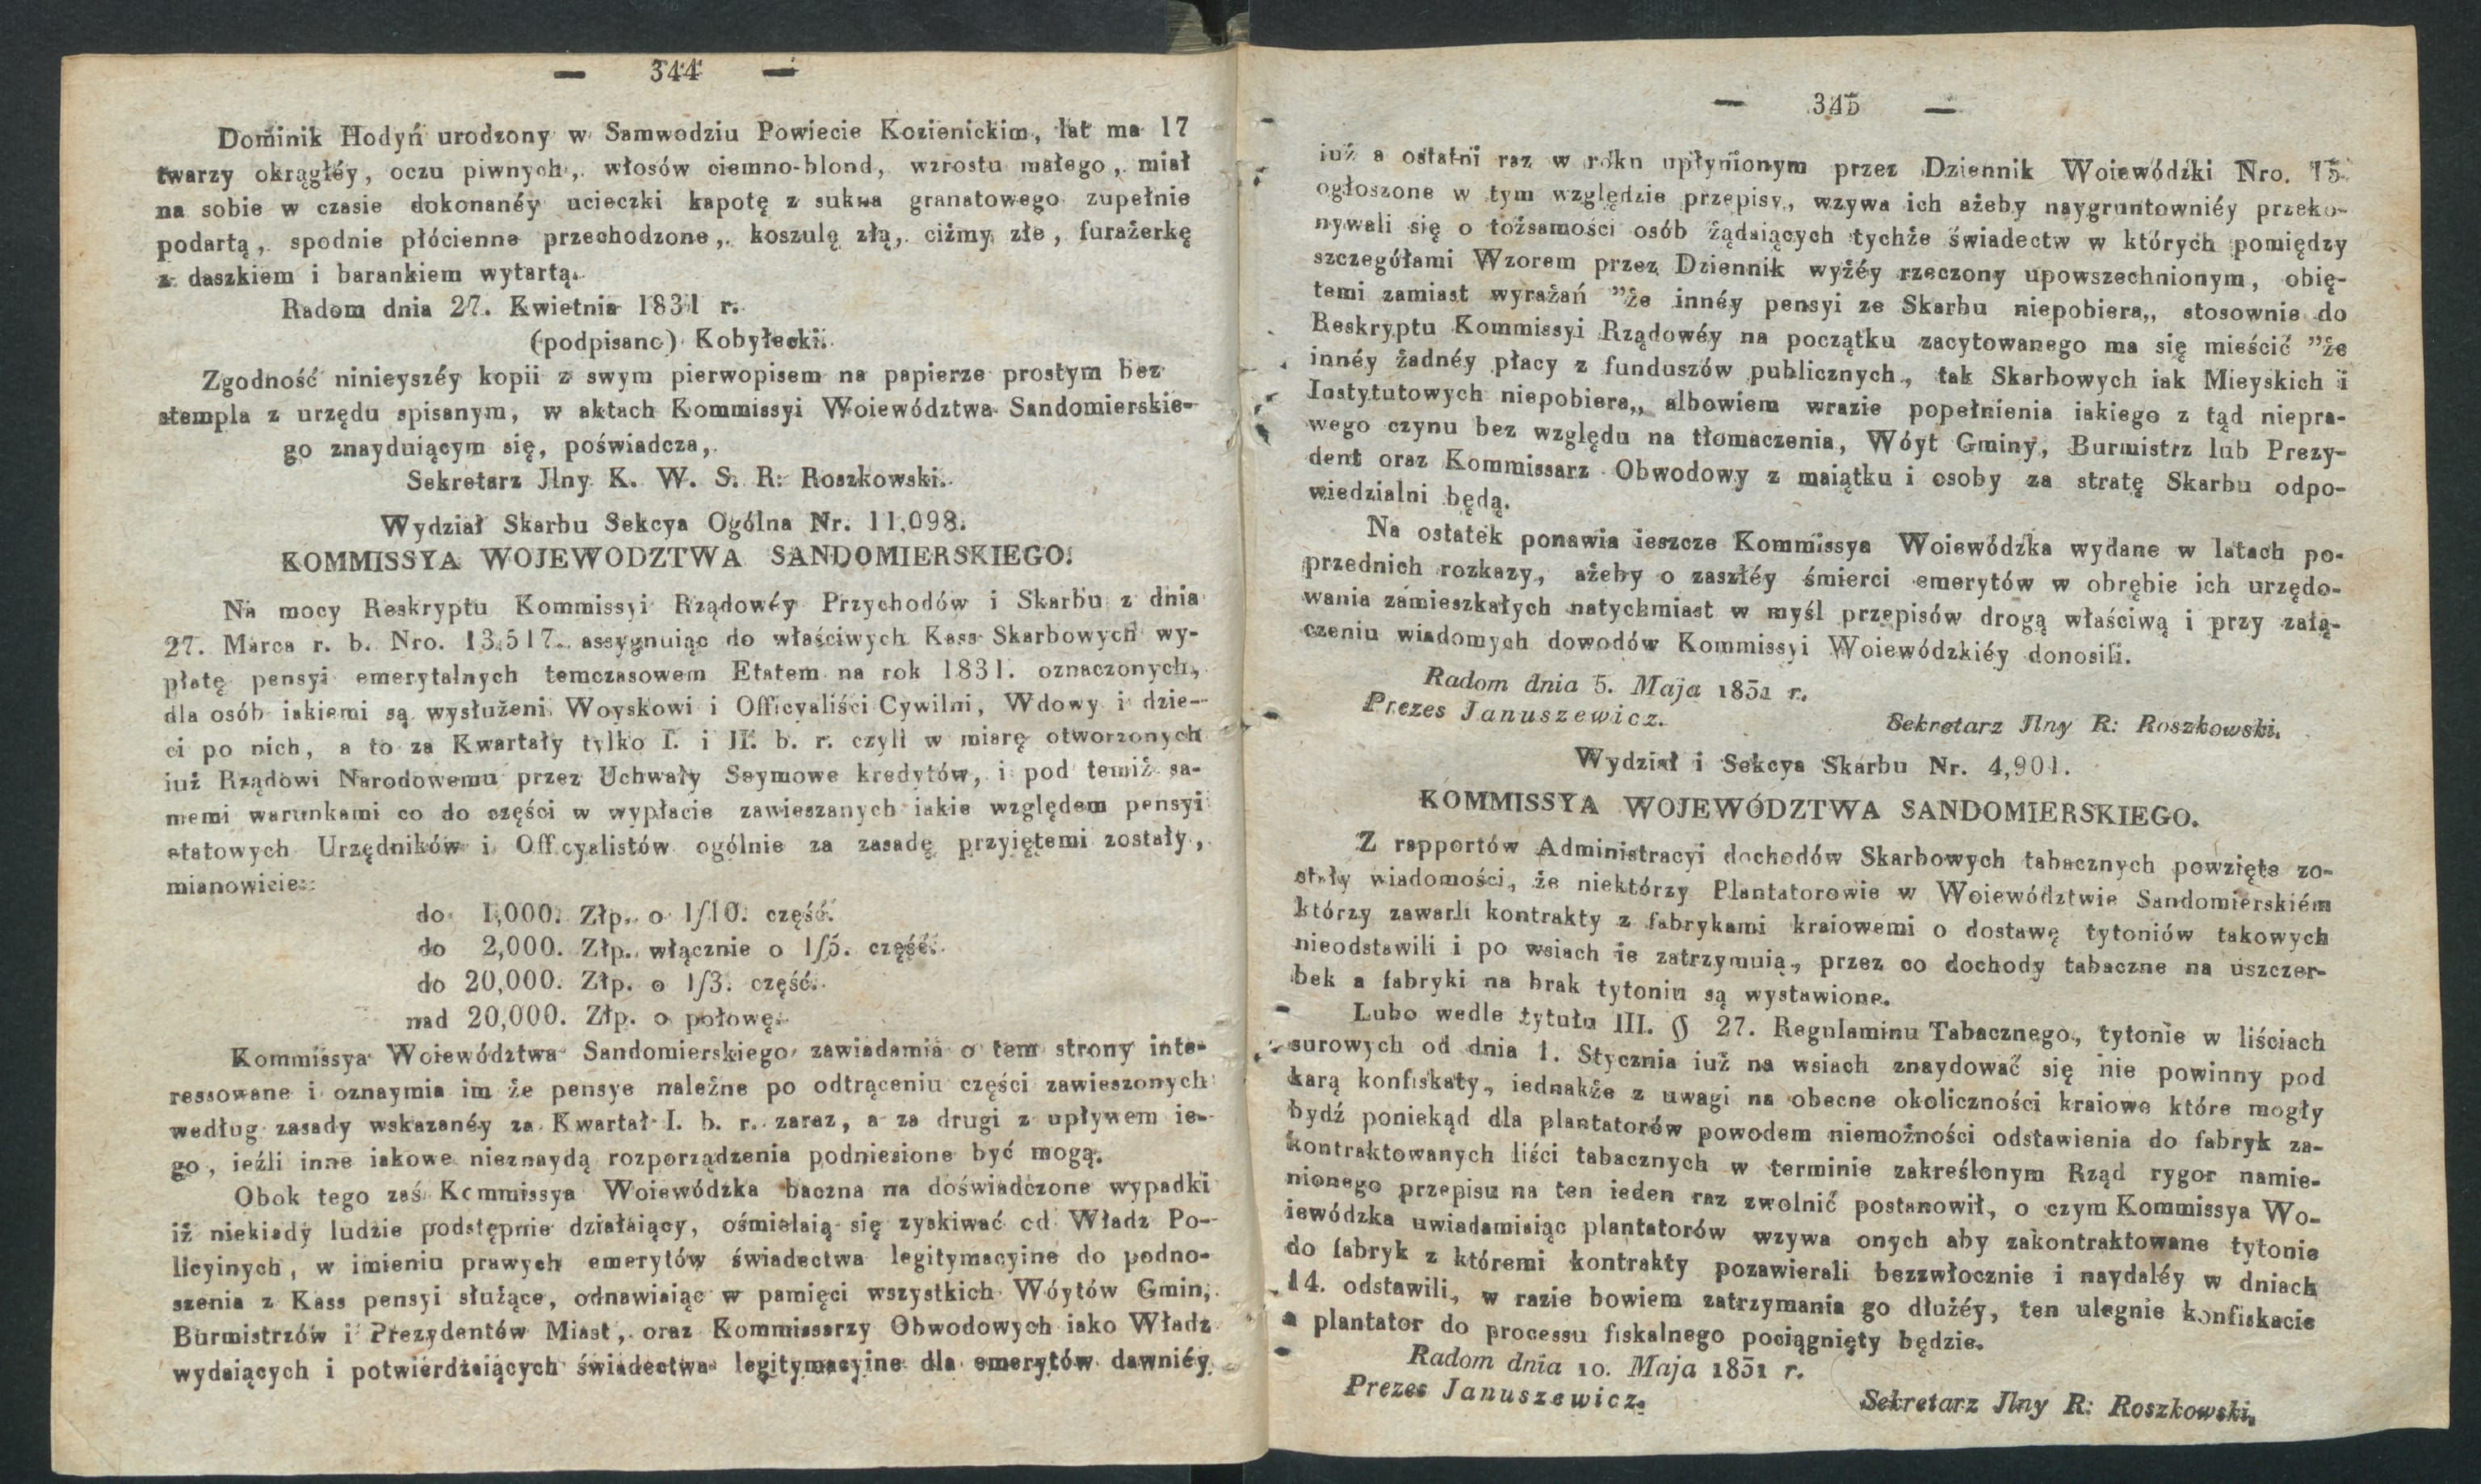 — 344 —
Dominik Hodyń urodzony w Samwodziu Powiecie Kozienickim, lat ma 17
twarzy okrągłéy, oczu piwnych, włosów ciemno-blond, wzrostu małego, miał
na sobie w czasie dokonanéy ucieczki kapotę z sukna granatowego zupełnie
podartą, spodnie płócienne przechodzone, koszulę złą, ciżmy złe, furażerkę
z daszkiem i barankiem wytartą.
Radom dnia 27. Kwietnia 1831 r.
(podpisano) Kobyłecki.
Zgodność ninieyszéy kopii z swym pierwopisem na papierze prostym bez
stempla z urzędu spisanym, w aktach Kommissyi Woiewództwa Sandomierskie-
go znayduiącym się, poświadcza,
Sekretarz Jlny K. W. S. R: Roszkowski.
Wydział Skarbu Sekcya Ogólna Nr. 11,098.
KOMMISSYA WOJEWODZTWA SANDOMIERSKIEGO.
Na mocy Reskryptu Kommissyi Rządowéy Przychodów i Skarbu z dnia
27. Marca r. b. Nro. 13,517. assygnuiąc do właściwych Kass Skarbowych wy-
płatę pensyi emerytalnych temczasowem Etatem na rok 1831. oznaczonych,
dla osób iakiemi są wysłużeni Woyskowi i Officyaliści Cywilni, Wdowy i dzie-
ci po nich, a to za Kwartały tylko I. i II. b. r. czyli w miarę otworzonych
iuż Rządowi Narodowemu przez Uchwały Seymowe kredytów, i pod temiż sa-
memi warunkami co do części w wypłacie zawieszanych iakie względem pensyi
etatowych Urzędników i Officyalistów ogólnie za zasadę przyiętemi zostały,
mianowicie:
do 1,000. Złp. o 1/10. część.
do 2,000. Złp. włącznie o 1/5. część.
do 20,000. Złp. o 1/3. część.
nad 20,000. Złp. o połowę.
Kommissya Woiewództwa Sandomierskiego zawiadamia o tem strony inte-
ressowane i oznaymia im że pensye należne po odtrąceniu części zawieszonych
według zasady wskazanéy za Kwartał I. b. r. zaraz, a za drugi z upływem ie-
go, ieźli inne iakowe nieznaydą rozporządzenia podniesione być mogą.
Obok tego zaś Kommissya Woiewódzka baczna na doświadczone wypadki
iż niekiedy ludzie podstępnie działaiący, ośmielaią się zyskiwać od Władz Po-
licyinych, w imieniu prawych emerytów świadectwa legitymacyine do podno-
szenia z Kass pensyi służące, odnawiaiąc w pamięci wszystkich Wóytów Gmin,
Burmistrzów i Prezydentów Miast, oraz Kommissarzy Obwodowych iako Władz
wydaiących i potwierdzaiących świadectwa legitymacyine dla emerytów dawniéy
— 345 —
iuż a ostatni raz w roku upłynionym przez Dziennik Woiewódzki Nro. 15
ogłoszone w tym względzie przepisy, wzywa ich ażeby naygruntowniéy przeko-
nywali się o tożsamości osób żądaiących tychże świadectw w których pomiędzy
szczegółami Wzorem przez Dziennik wyżéy rzeczony upowszechnionym, obię-
temi zamiast wyrażań "że innéy pensyi ze Skarbu niepobiera,, stosownie do
Reskryptu Kommissyi Rządowéy na początku zacytowanego ma się mieścić "że
innéy żadnéy płacy z funduszów publicznych, tak Skarbowych iak Mieyskich i
Instytutowych niepobiera,, albowiem wrazie popełnienia iakiego z tąd niepra-
wego czynu bez względu na tłomaczenia, Wóyt Gminy, Burmistrz lub Prezy-
dent oraz Kommissarz Obwodowy z maiątku i osoby za stratę Skarbu odpo-
wiedzialni będą.
Na ostatek ponawia ieszcze Kommissya Woiewódzka wydane w latach po-
przednich rozkazy, ażeby o zaszłéy śmierci emerytów w obrębie ich urzędo-
wania zamieszkałych natychmiast w myśl przepisów drogą właściwą i przy załą-
czeniu wiadomych dowodów Kommissyi Woiewódzkiéy donosili.
Radom dnia 5. Maja 1831 r.
Prezes Januszewicz.
Sekretarz Jlny R: Roszkowski.
Wydział i Sekcya Skarbu Nr. 4,901.
KOMMISSYA WOJEWÓDZTWA SANDOMIERSKIEGO.
Z rapportów Administracyi dochodów Skarbowych tabacznych powzięte zo-
stały wiadomości, że niektórzy Plantatorowie w Woiewództwie Sandomierskiém
którzy zawarli kontrakty z fabrykami kraiowemi o dostawę tytoniów takowych
nieodstawili i po wsiach ie zatrzymuią, przez co dochody tabaczne na uszczer-
bek a fabryki na brak tytoniu są wystawione.
Lubo wedle tytułu III. § 27. Regulaminu Tabacznego, tytonie w liściach
surowych od dnia 1. Stycznia iuż na wsiach znaydować się nie powinny pod
karą konfiskaty, iednakże z uwagi na obecne okoliczności kraiowe które mogły
bydź poniekąd dla plantatorów powodem niemożności odstawienia do fabryk za-
kontraktowanych liści tabacznych w terminie zakreślonym Rząd rygor namie-
nionego przepisu na ten ieden raz zwolnić postanowił, o czym Kommissya Wo-
iewódzka uwiadamiaiąc plantatorów wzywa onych aby zakontraktowane tytonie
do fabryk z któremi kontrakty pozawierali bezzwłocznie i naydaléy w dniach
14. odstawili, w razie bowiem zatrzymania go dłużéy, ten ulegnie konfiskacie
a plantator do processu fiskalnego pociągnięty będzie.
Radom dnia 10. Maja 1831 r.
Prezes Januszewicz.
Sekretarz Jlny R: Roszkowski.